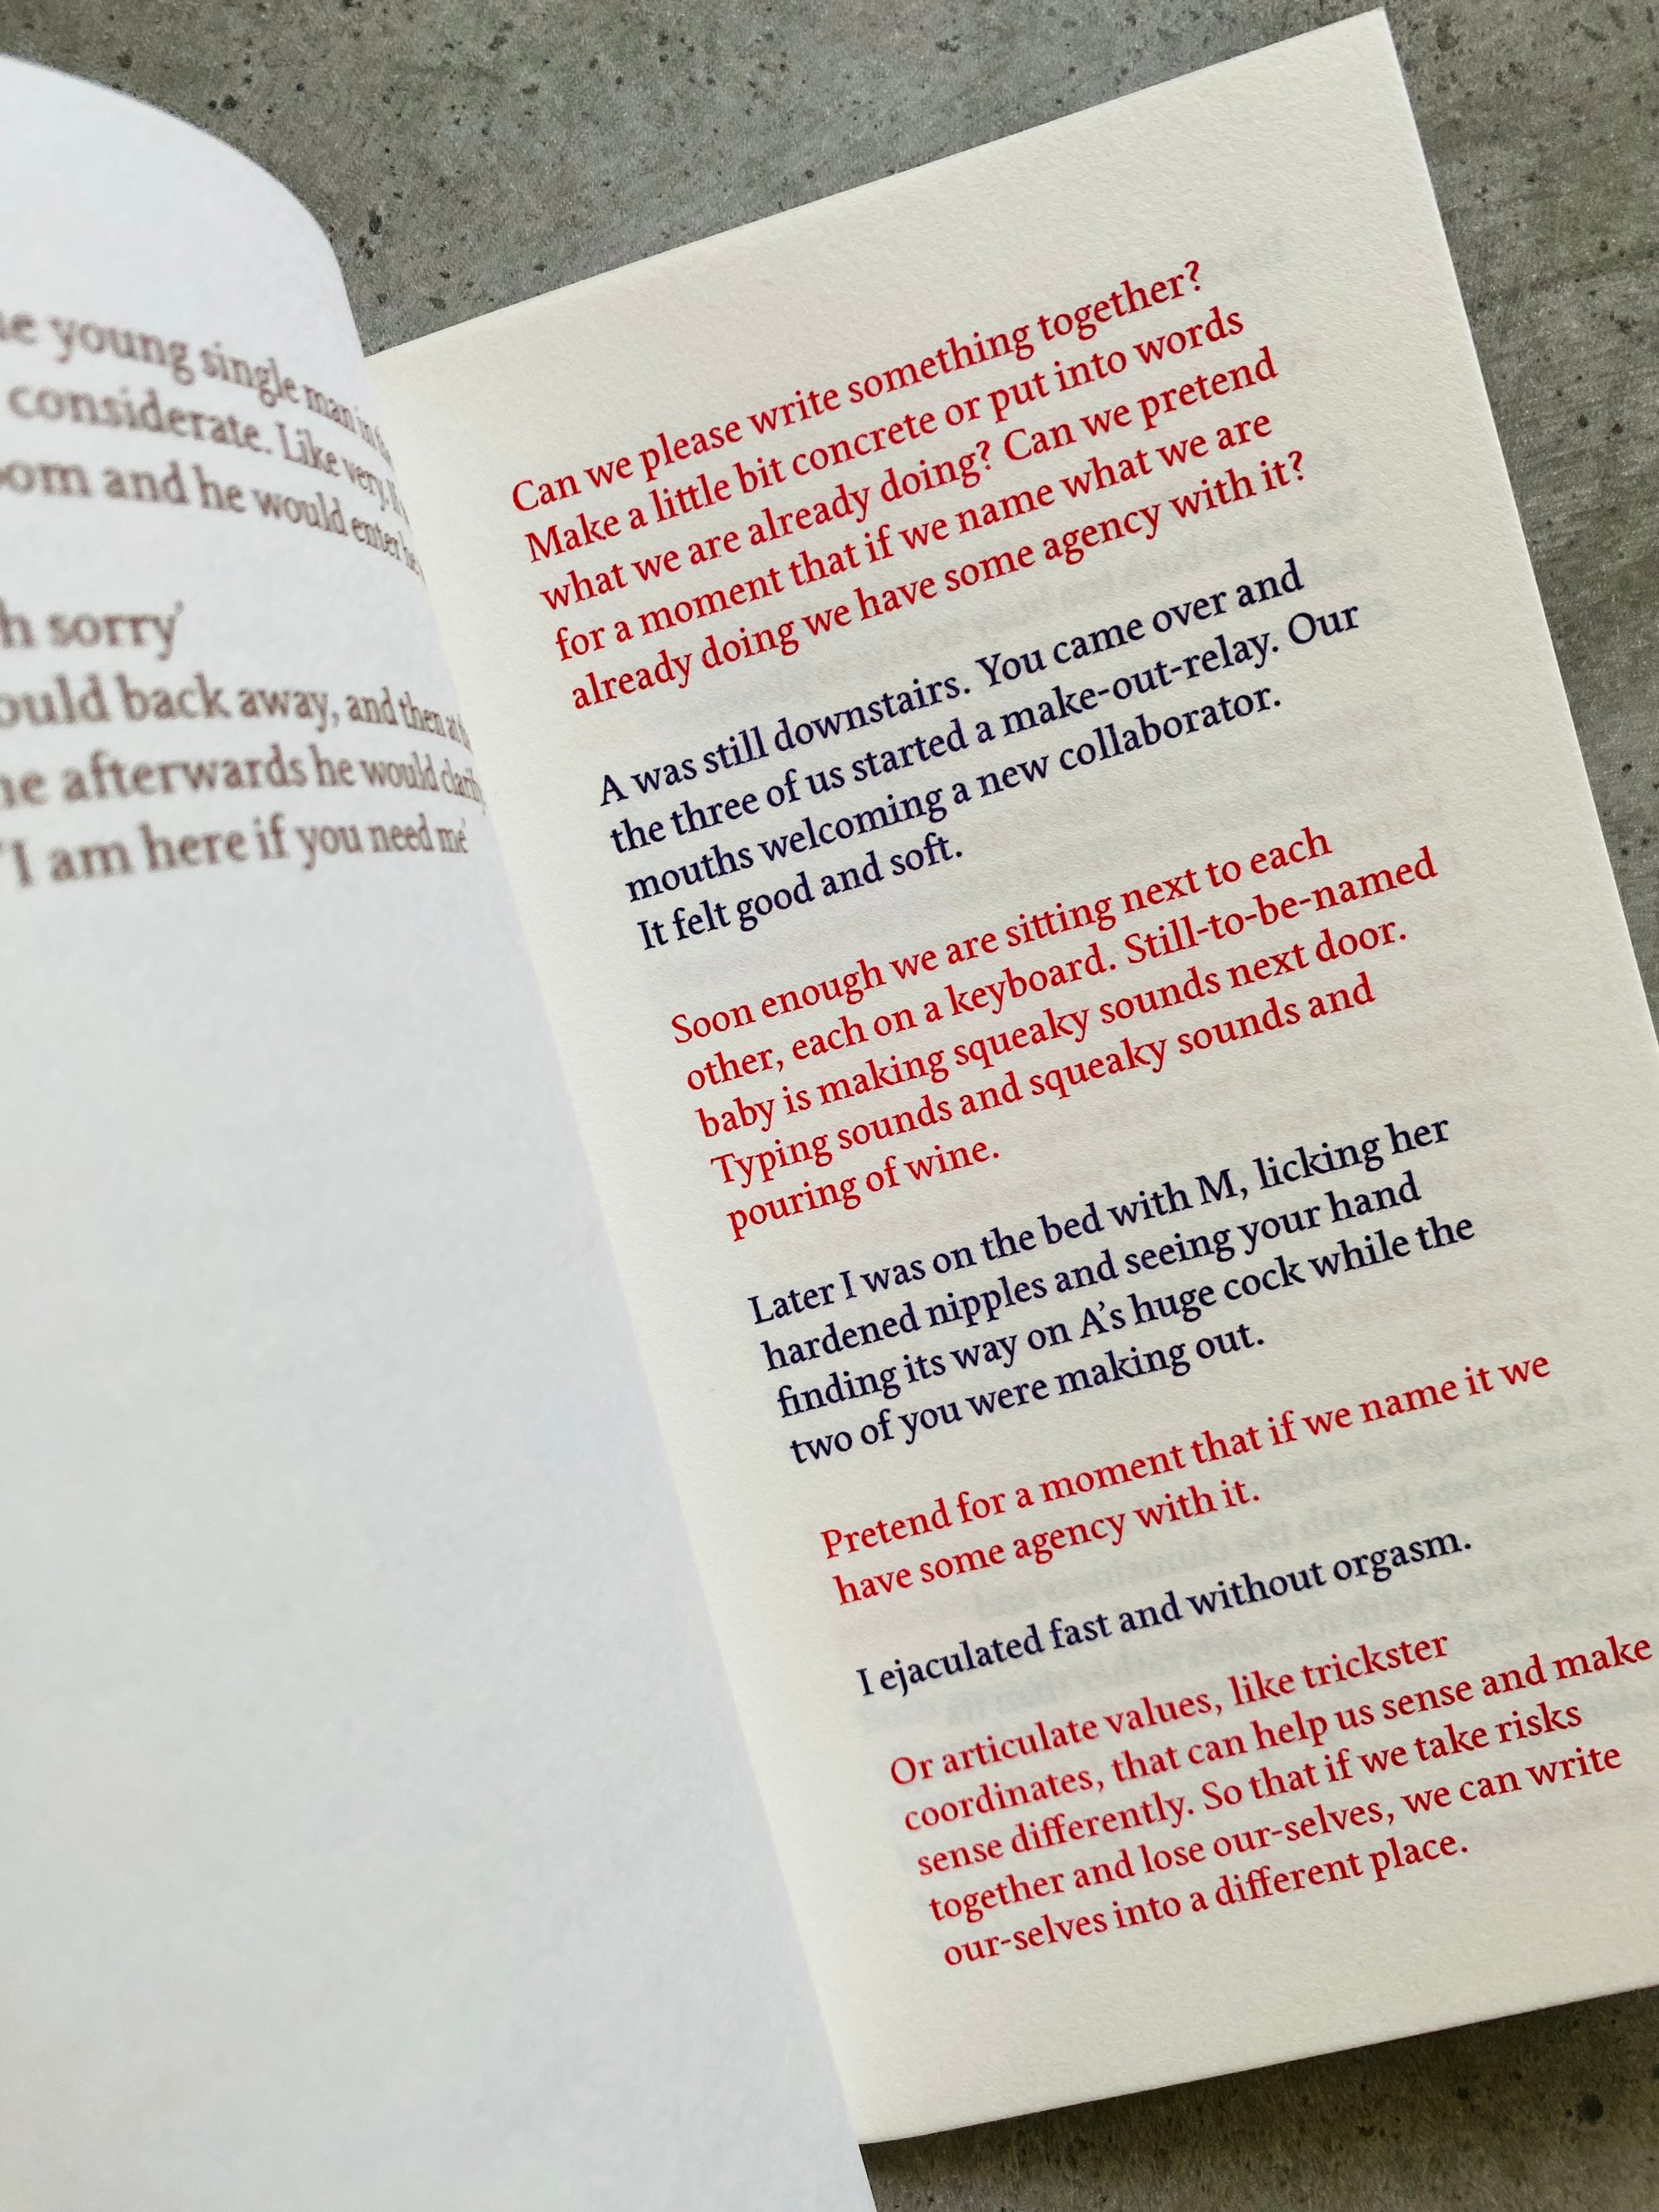 young single man in
considerate. Like very
and he would enter
sorry'
back away, and then at
afterwards he would
'I am here if you need me'
Can we please write something together?
Make a little bit concrete or put into words
what we are already doing? Can we pretend
for a moment that if we name what we are
already doing we have some agency with it?
A was still downstairs. You came over and
the three of us started a make-out-relay. Our
mouths welcoming a new collaborator.
It felt good and soft.
Soon enough we are sitting next to each
other, each on a keyboard. Still-to-be-named
baby is making squeaky sounds next door.
Typing sounds and squeaky sounds and
pouring of wine.
Later I was on the bed with M, licking her
hardened nipples and seeing your hand
finding its way on A's huge cock while the
two of you were making out.
Pretend for a moment that if we name it we
have some agency with it.
I ejaculated fast and without orgasm.
Or articulate values, like trickster
coordinates, that can help us sense and make
sense differently. So that if we take risks
together and lose our-selves, we can write
our-selves into a different place.